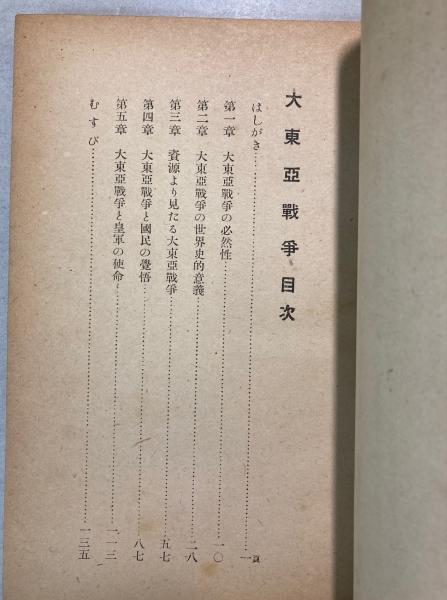 大東亞戰爭目次
はしがき……………………一頁
第一章 大東亞戰爭の必然性……………………一〇
第二章 大東亞戰爭の世界史的意義……………………二八
第三章 資源より見たる大東亞戰爭……………………五七
第四章 大東亞戰爭と國民の覺悟……………………八七
第五章 大東亞戰爭と皇軍の使命……………………一一三
むすび……………………一三五